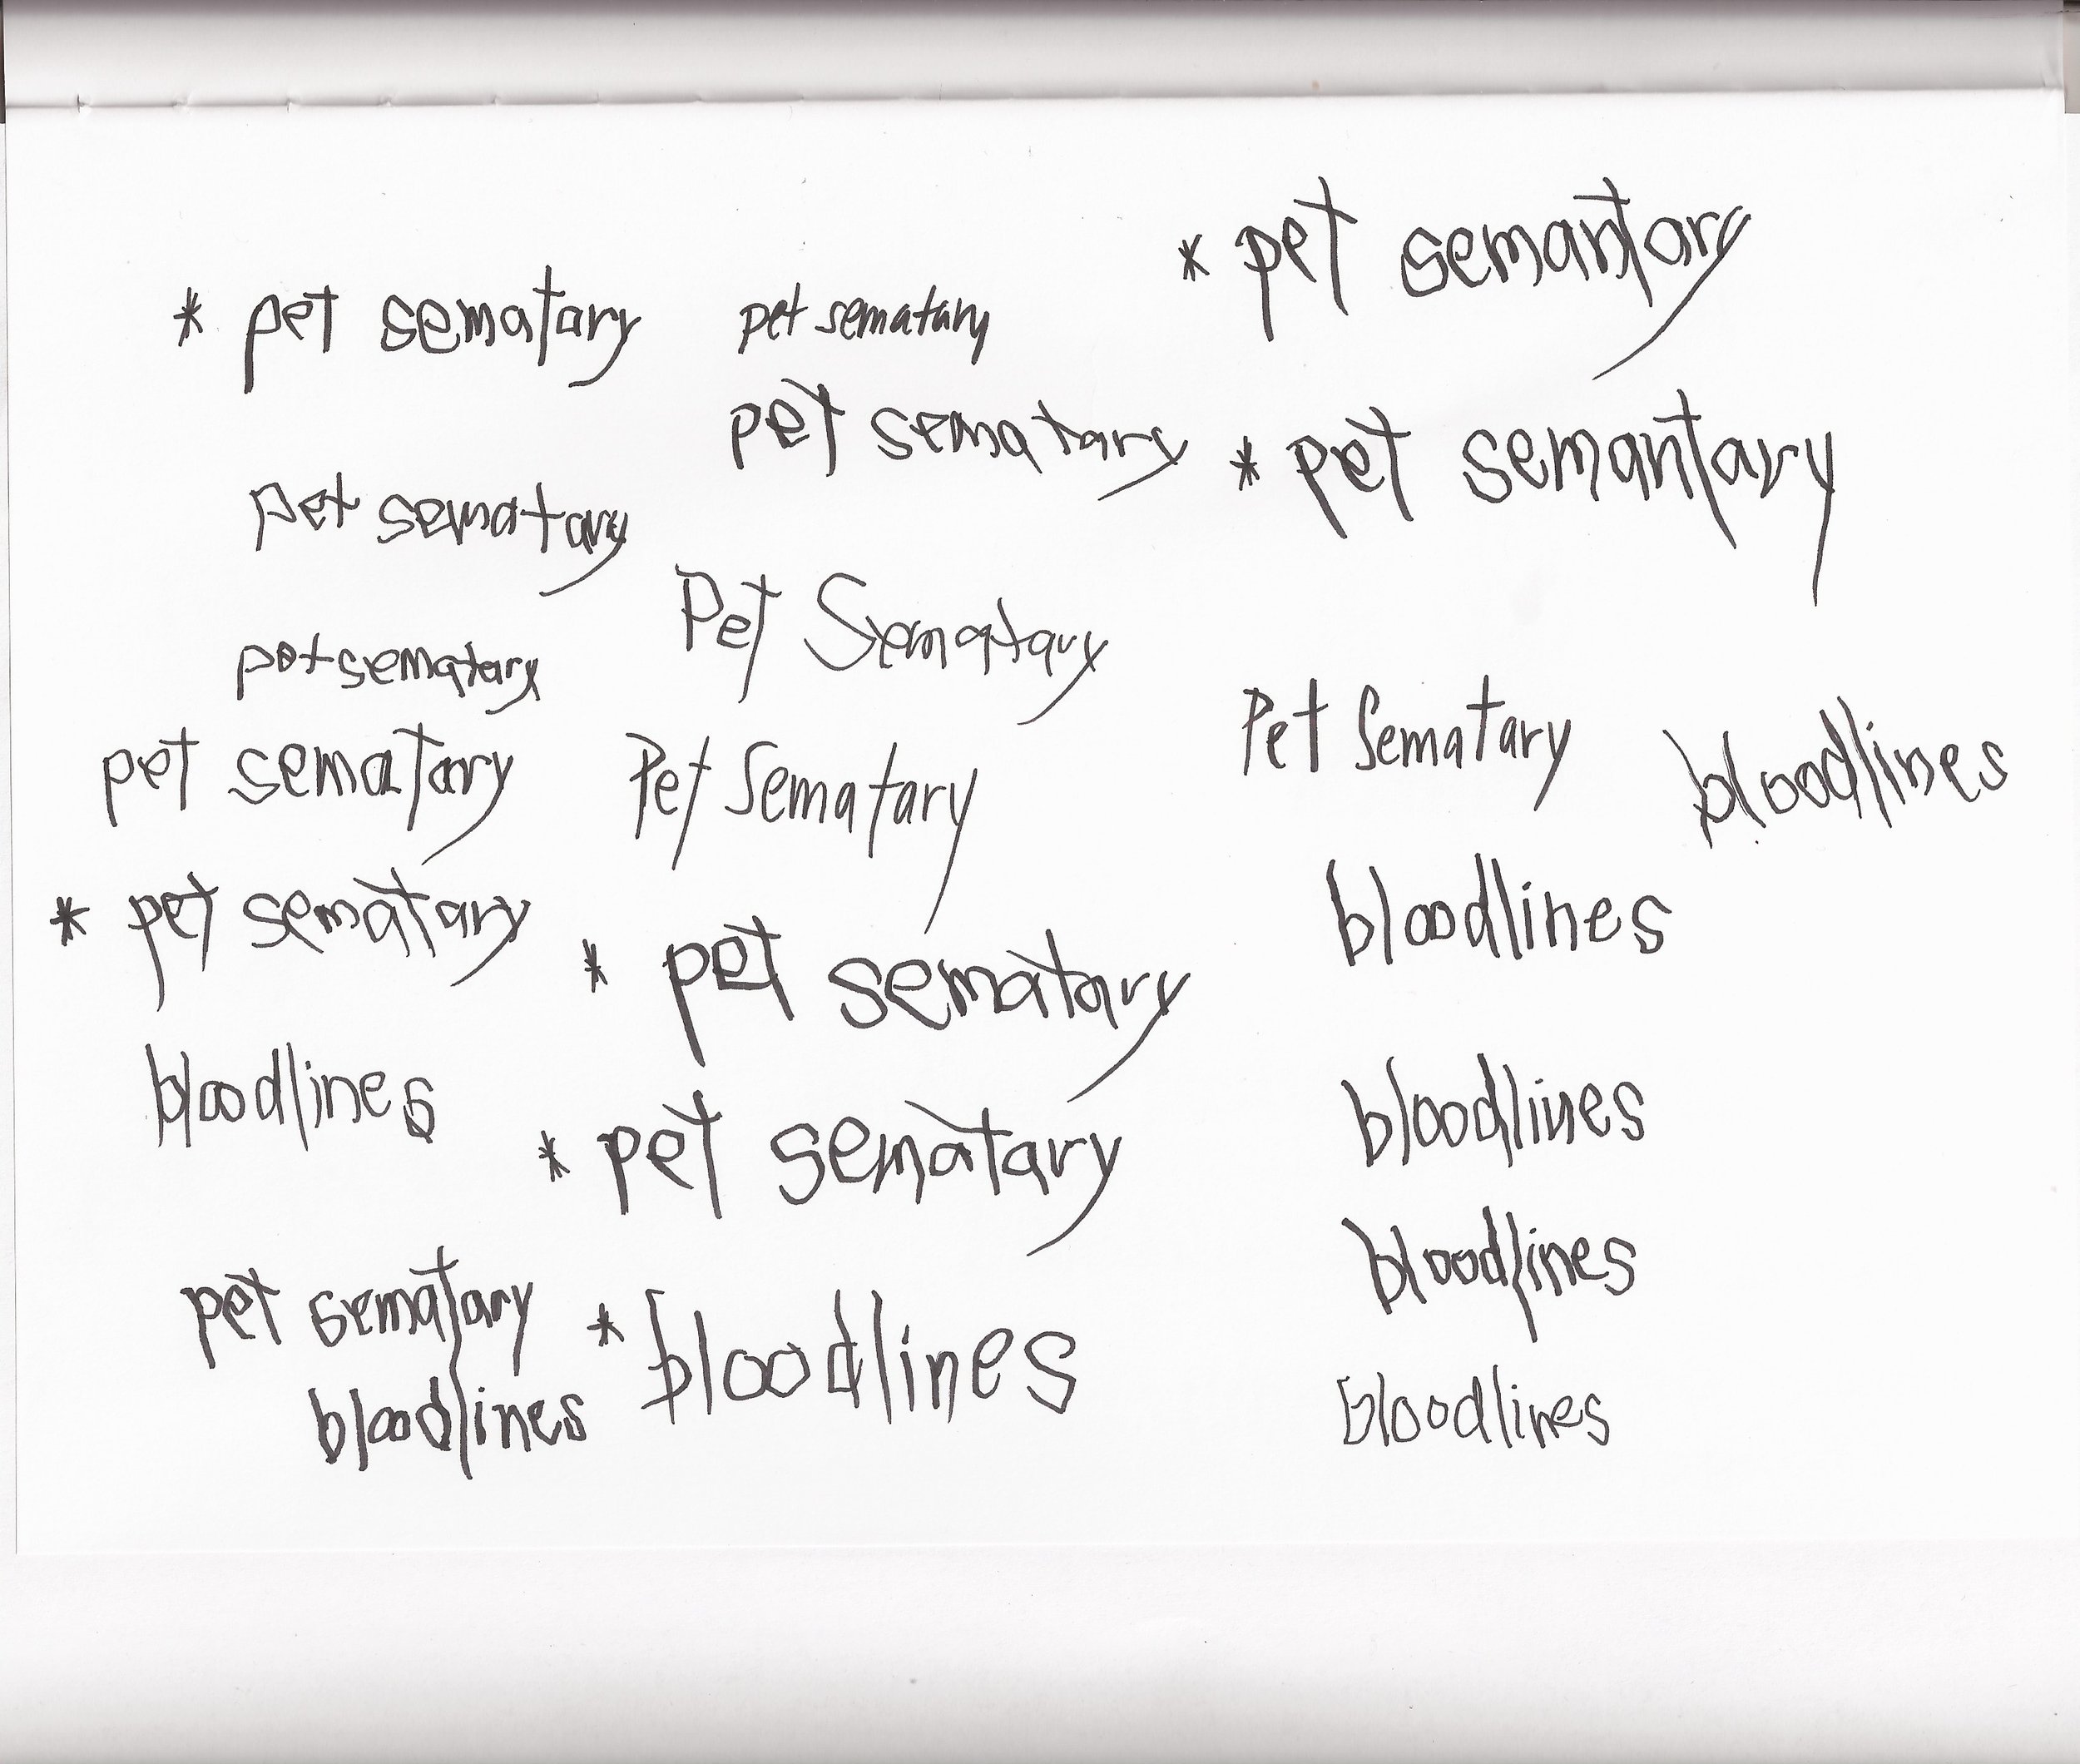 * pet sematary
pet sematary
pet sematary
pet sematary
* pet sematary
bloodlines
pet sematary
bloodlines
pet sematary
pet sematary
Pet Sematary
Pet Sematary
* pet sematary
* pet sematary
* bloodlines
* pet semantary
* pet semantary
Pet Sematary
bloodlines
bloodlines
bloodlines
bloodlines
bloodlines